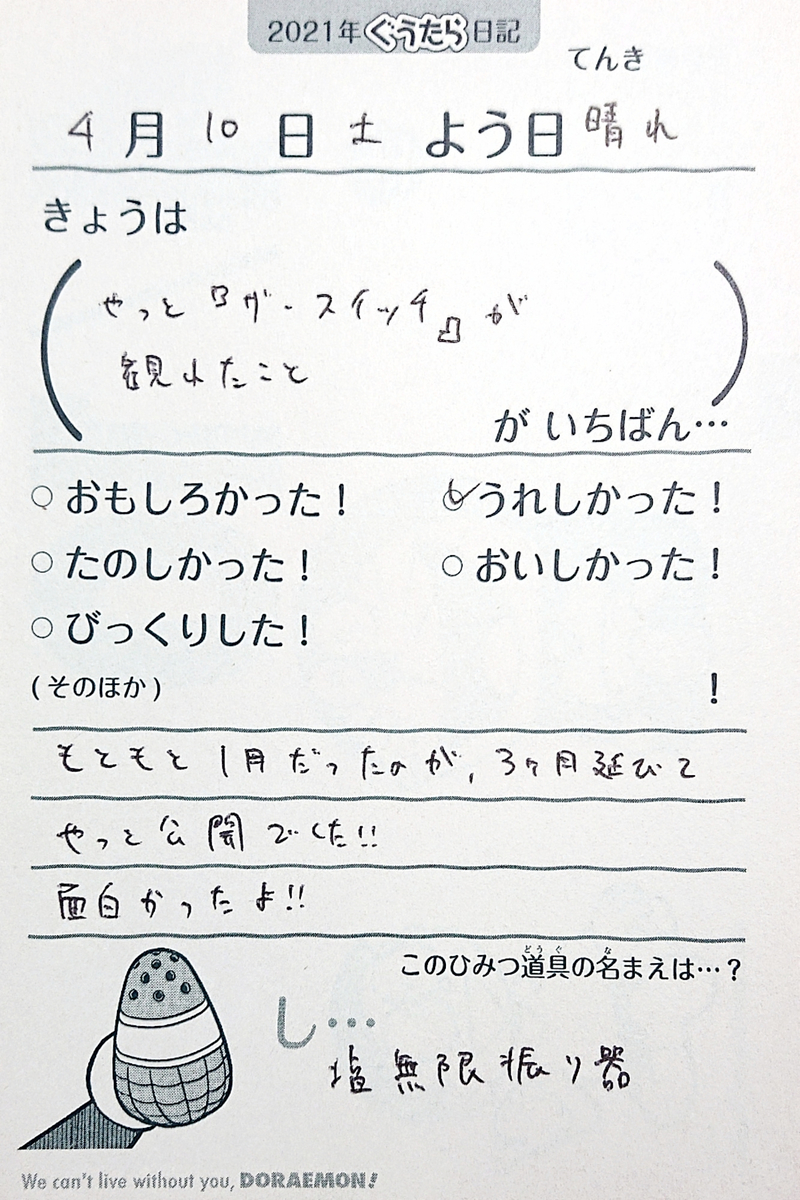 2021年ぐうたら日記
てんき
4月10日土よう日晴れ
きょうは
やっと『ザ・スイッチ』が
観れたこと
が いちばん…
○おもしろかった！ ○うれしかった！
○たのしかった！ ○おいしかった！
○びっくりした！
(そのほか) ！
もともと1月だったのが、3ヶ月延びて
やっと公開でした!!
面白かったよ!!
このひみつ道具の名まえは…？
し…
塩無限振り器
We can't live without you, DORAEMON!